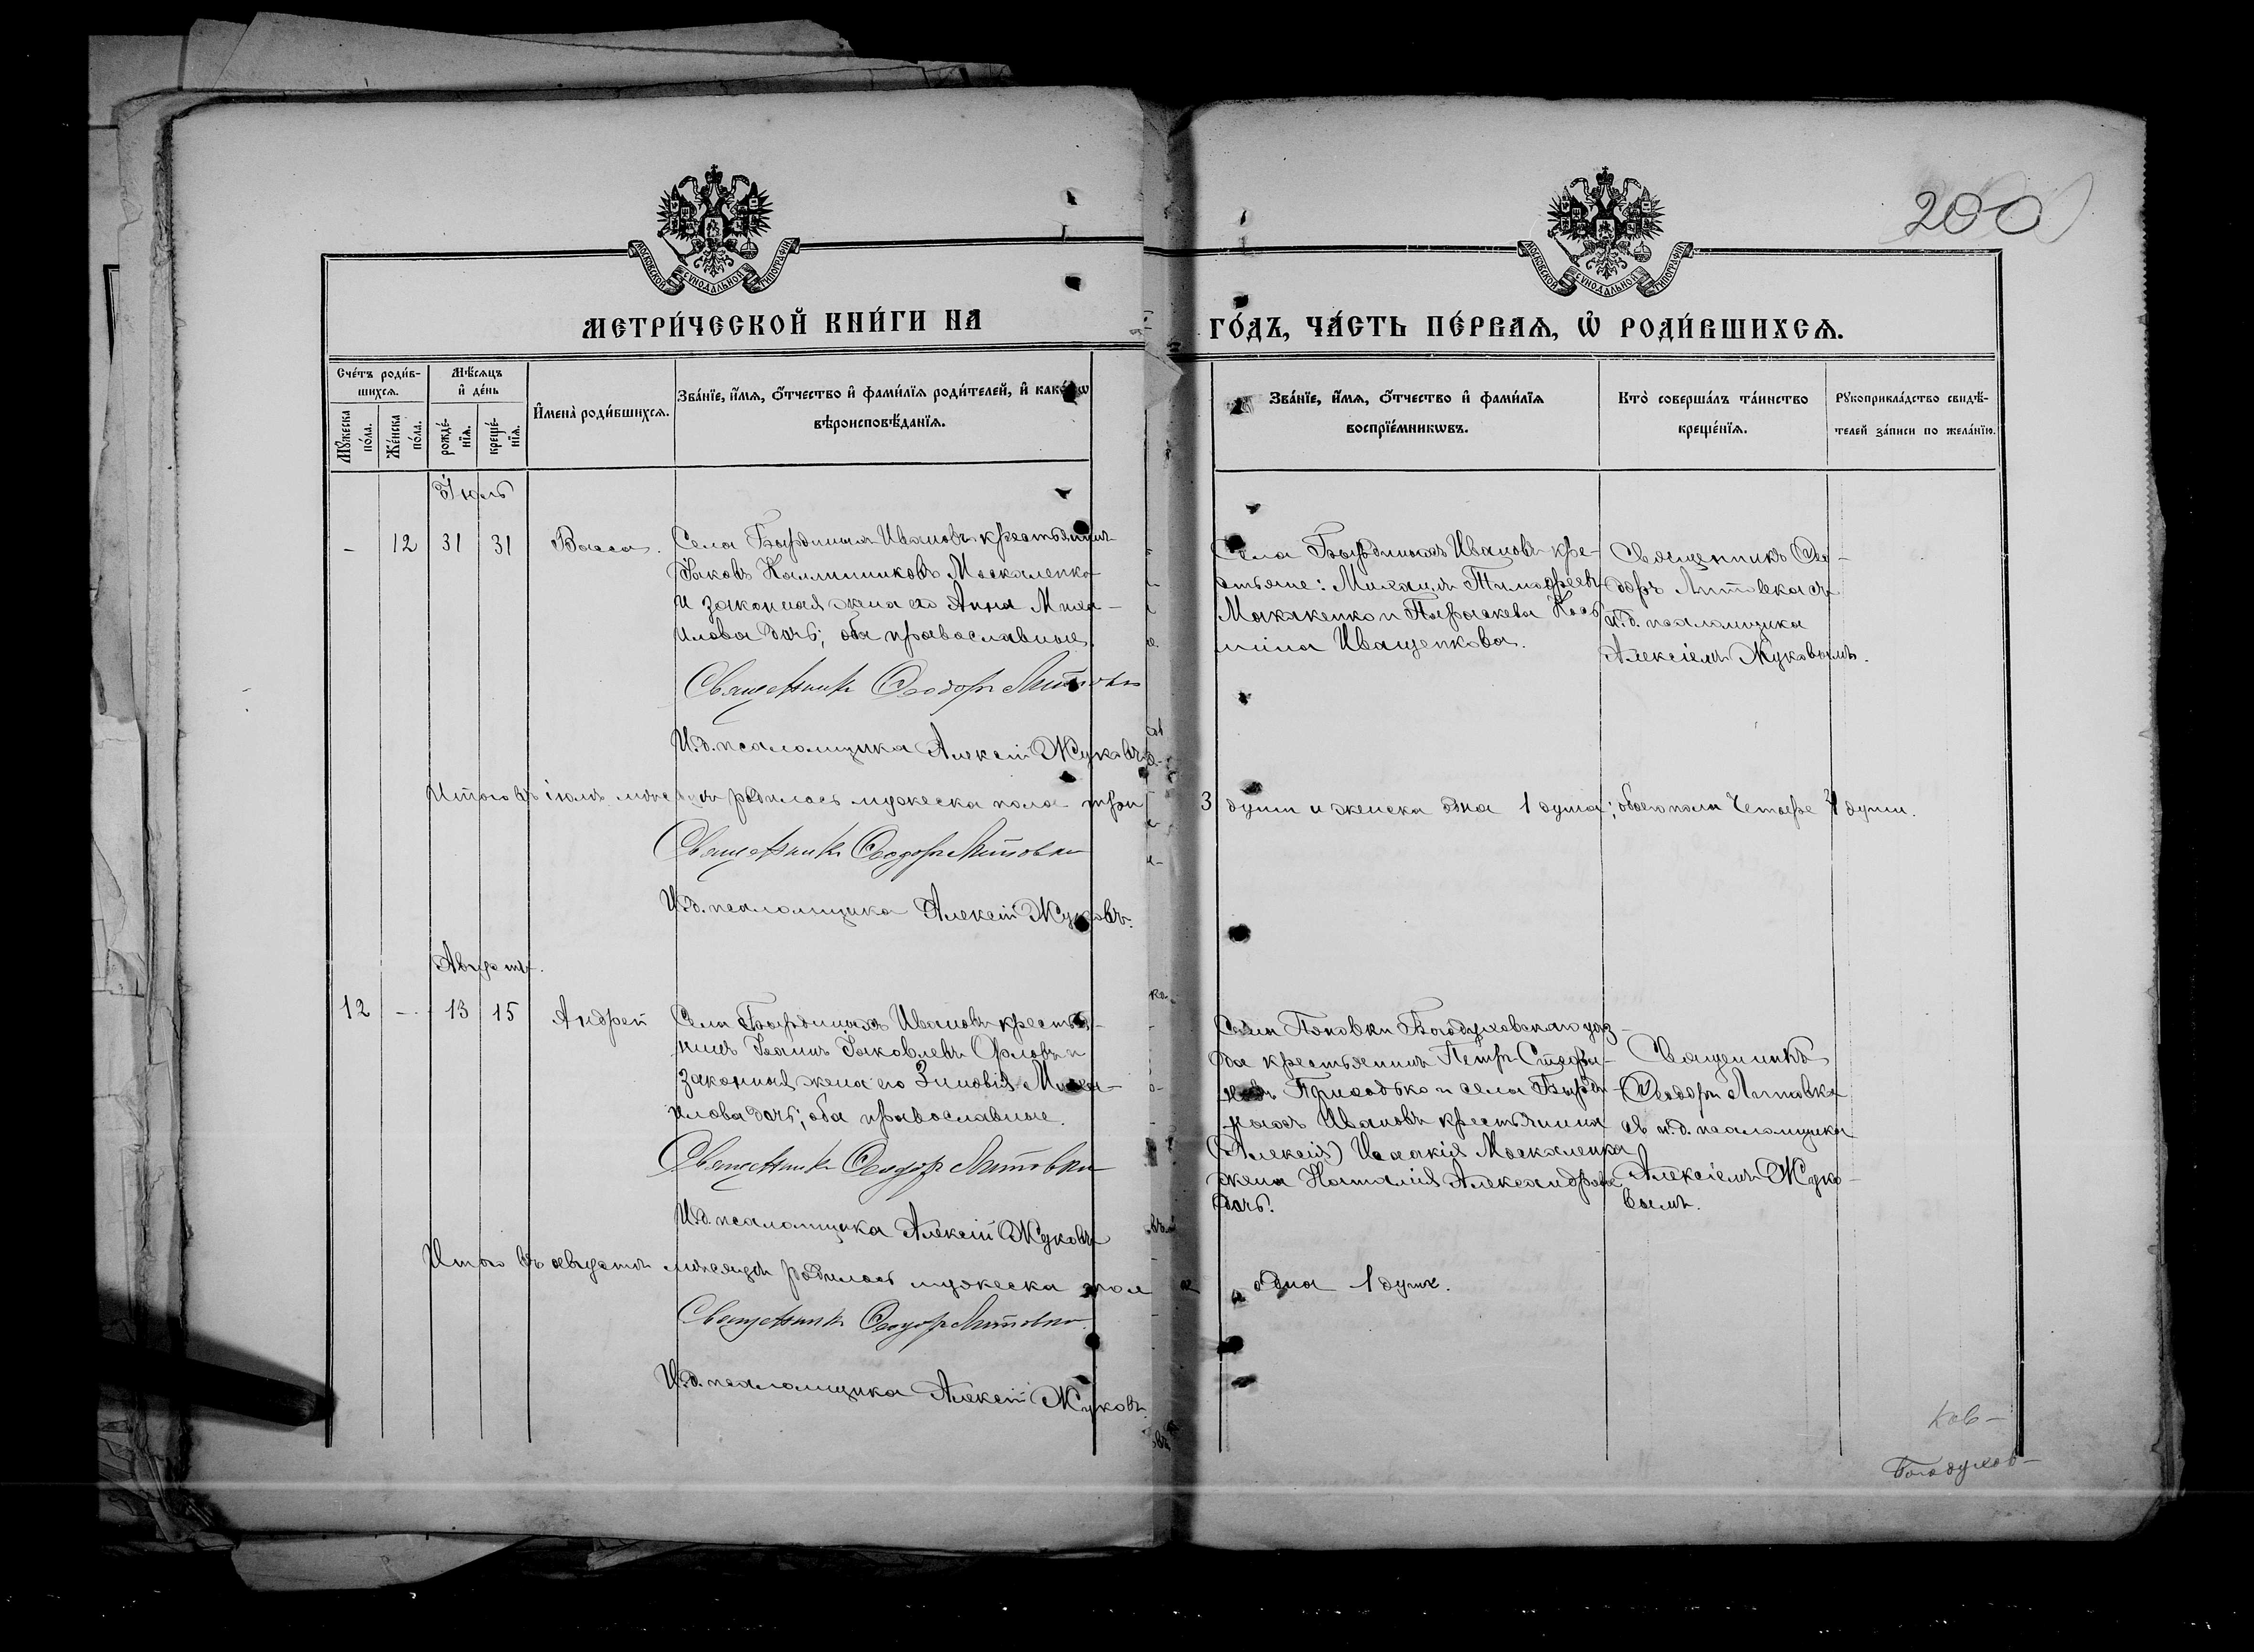 200
МОСКОВСКОЙ СѴНОДАЛЬНОЙ ТИПОГРАФІИ
МОСКОВСКОЙ СѴНОДАЛЬНОЙ ТИПОГРАФІИ
МЕТРИ́ЧЕСКОЙ КНИ́ГИ НА
ГО́ДЪ, ЧА́СТЬ ПЕ́РВАѦ, Ѡ҆ РОДИ́ВШИХСѦ.
Сче́тъ роди́в-
шихсѧ.
Мꙋ́жеска
по́ла.
Же́нска
по́ла.
Мѣ́сѧцъ
и҆ де́нь
рожде́-
нїѧ.
креще́-
нїѧ.
И҆мена̀ роди́вшихсѧ.
Зва́нїе, и҆́мѧ, ѻ҆́тчество и҆ фами́лїѧ роди́телей, и҆ како́гѡ
вѣроисповѣ́данїѧ.
Зва́нїе, и҆́мѧ, ѻ҆́тчество и҆ фами́лїѧ
воспрїе́мникѡвъ.
Кто̀ соверша́лъ та́инство
креще́нїѧ.
Рꙋкоприкла́дство свидѣ́-
телей за́писи по жела́нїю.
Іюль
- 12 31 31 Васса.
Села Бырдиныхъ Ивановъ крестьянинъ
Іаковъ Каллиниковъ Москаленко
и законная жена его Анна Миха-
илова дочь; оба православные.
Священникъ Ѳеодоръ Литовка
И.д. псаломщика Алексій Жуковъ
Села Бырдиныхъ Ивановъ кре-
стьяне: Михаилъ Тимофеевъ
Макаренко и Параскева Кось
мина Иващенкова.
Священникъ Ѳео-
доръ Литовка съ
и.д. псаломщика
Алексіемъ Жуковымъ.
Итого въ іюлѣ мѣсяцѣ родилось мужеска пола три
3 души и женска одна 1 душа; обоего пола четыре 4 души.
Священникъ Ѳеодоръ Литовка
И.д. псаломщика Алексій Жуковъ.
Августъ.
12 - 13 15 Андрей
Села Бырдиныхъ Ивановъ крестья-
нинъ Іаковлевъ Орловъ и
законная жена его Зиновія Миха-
илова дочь; оба православные.
Священникъ Ѳеодоръ Литовка
И.д. псаломщика Алексій Жуковъ
Села Поповки Богодуховскаго уѣз-
да крестьянинъ Петръ Стефа-
новъ Приходько и села Бырди-
ныхъ Ивановъ крестьянина
(Алексія) Исаакія Москаленка
жена Наталія Александрова
дочь.
Священникъ
Ѳеодоръ Литовка
съ и.д. псаломщика
Алексіемъ Жуко-
вымъ.
Итого въ августѣ мѣсяцѣ родилось мужеска пола
одна 1 душа.
Священникъ Ѳеодоръ Литовка
И.д. псаломщика Алексій Жуковъ.
Богодухов-